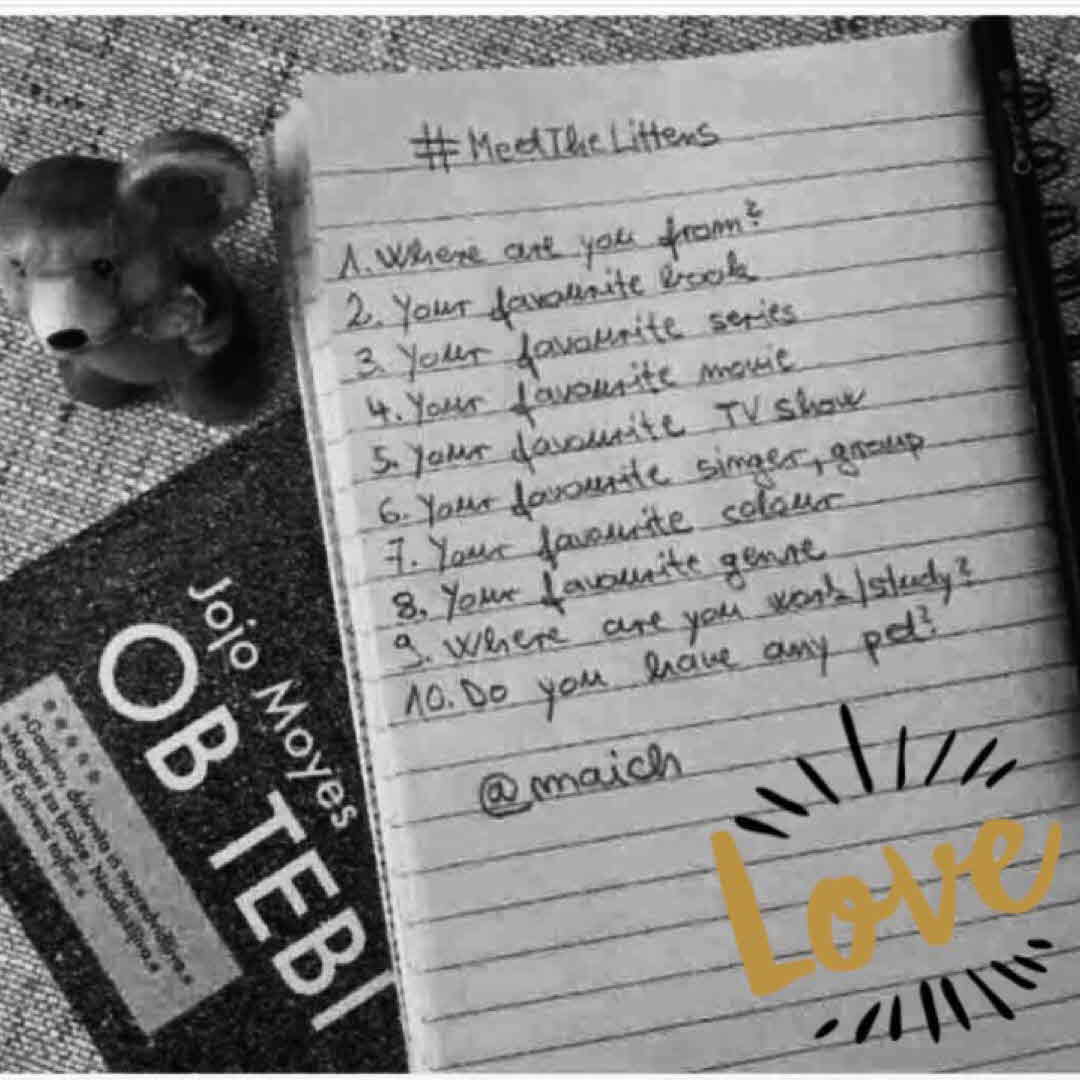 #MeetTheLittens
1. Where are you from?
2. Your favourite book
3. Your favourite series
4. Your favourite movie
5. Your favourite TV show
6. Your favourite singer, group
7. Your favourite colour
8. Your favourite genre
9. Where are you work/study?
10. Do you have any pet?
@maich
Love
Jojo Moyes
OB TEBI
»Ganljivo, duhovito in nepredvidljivo.«